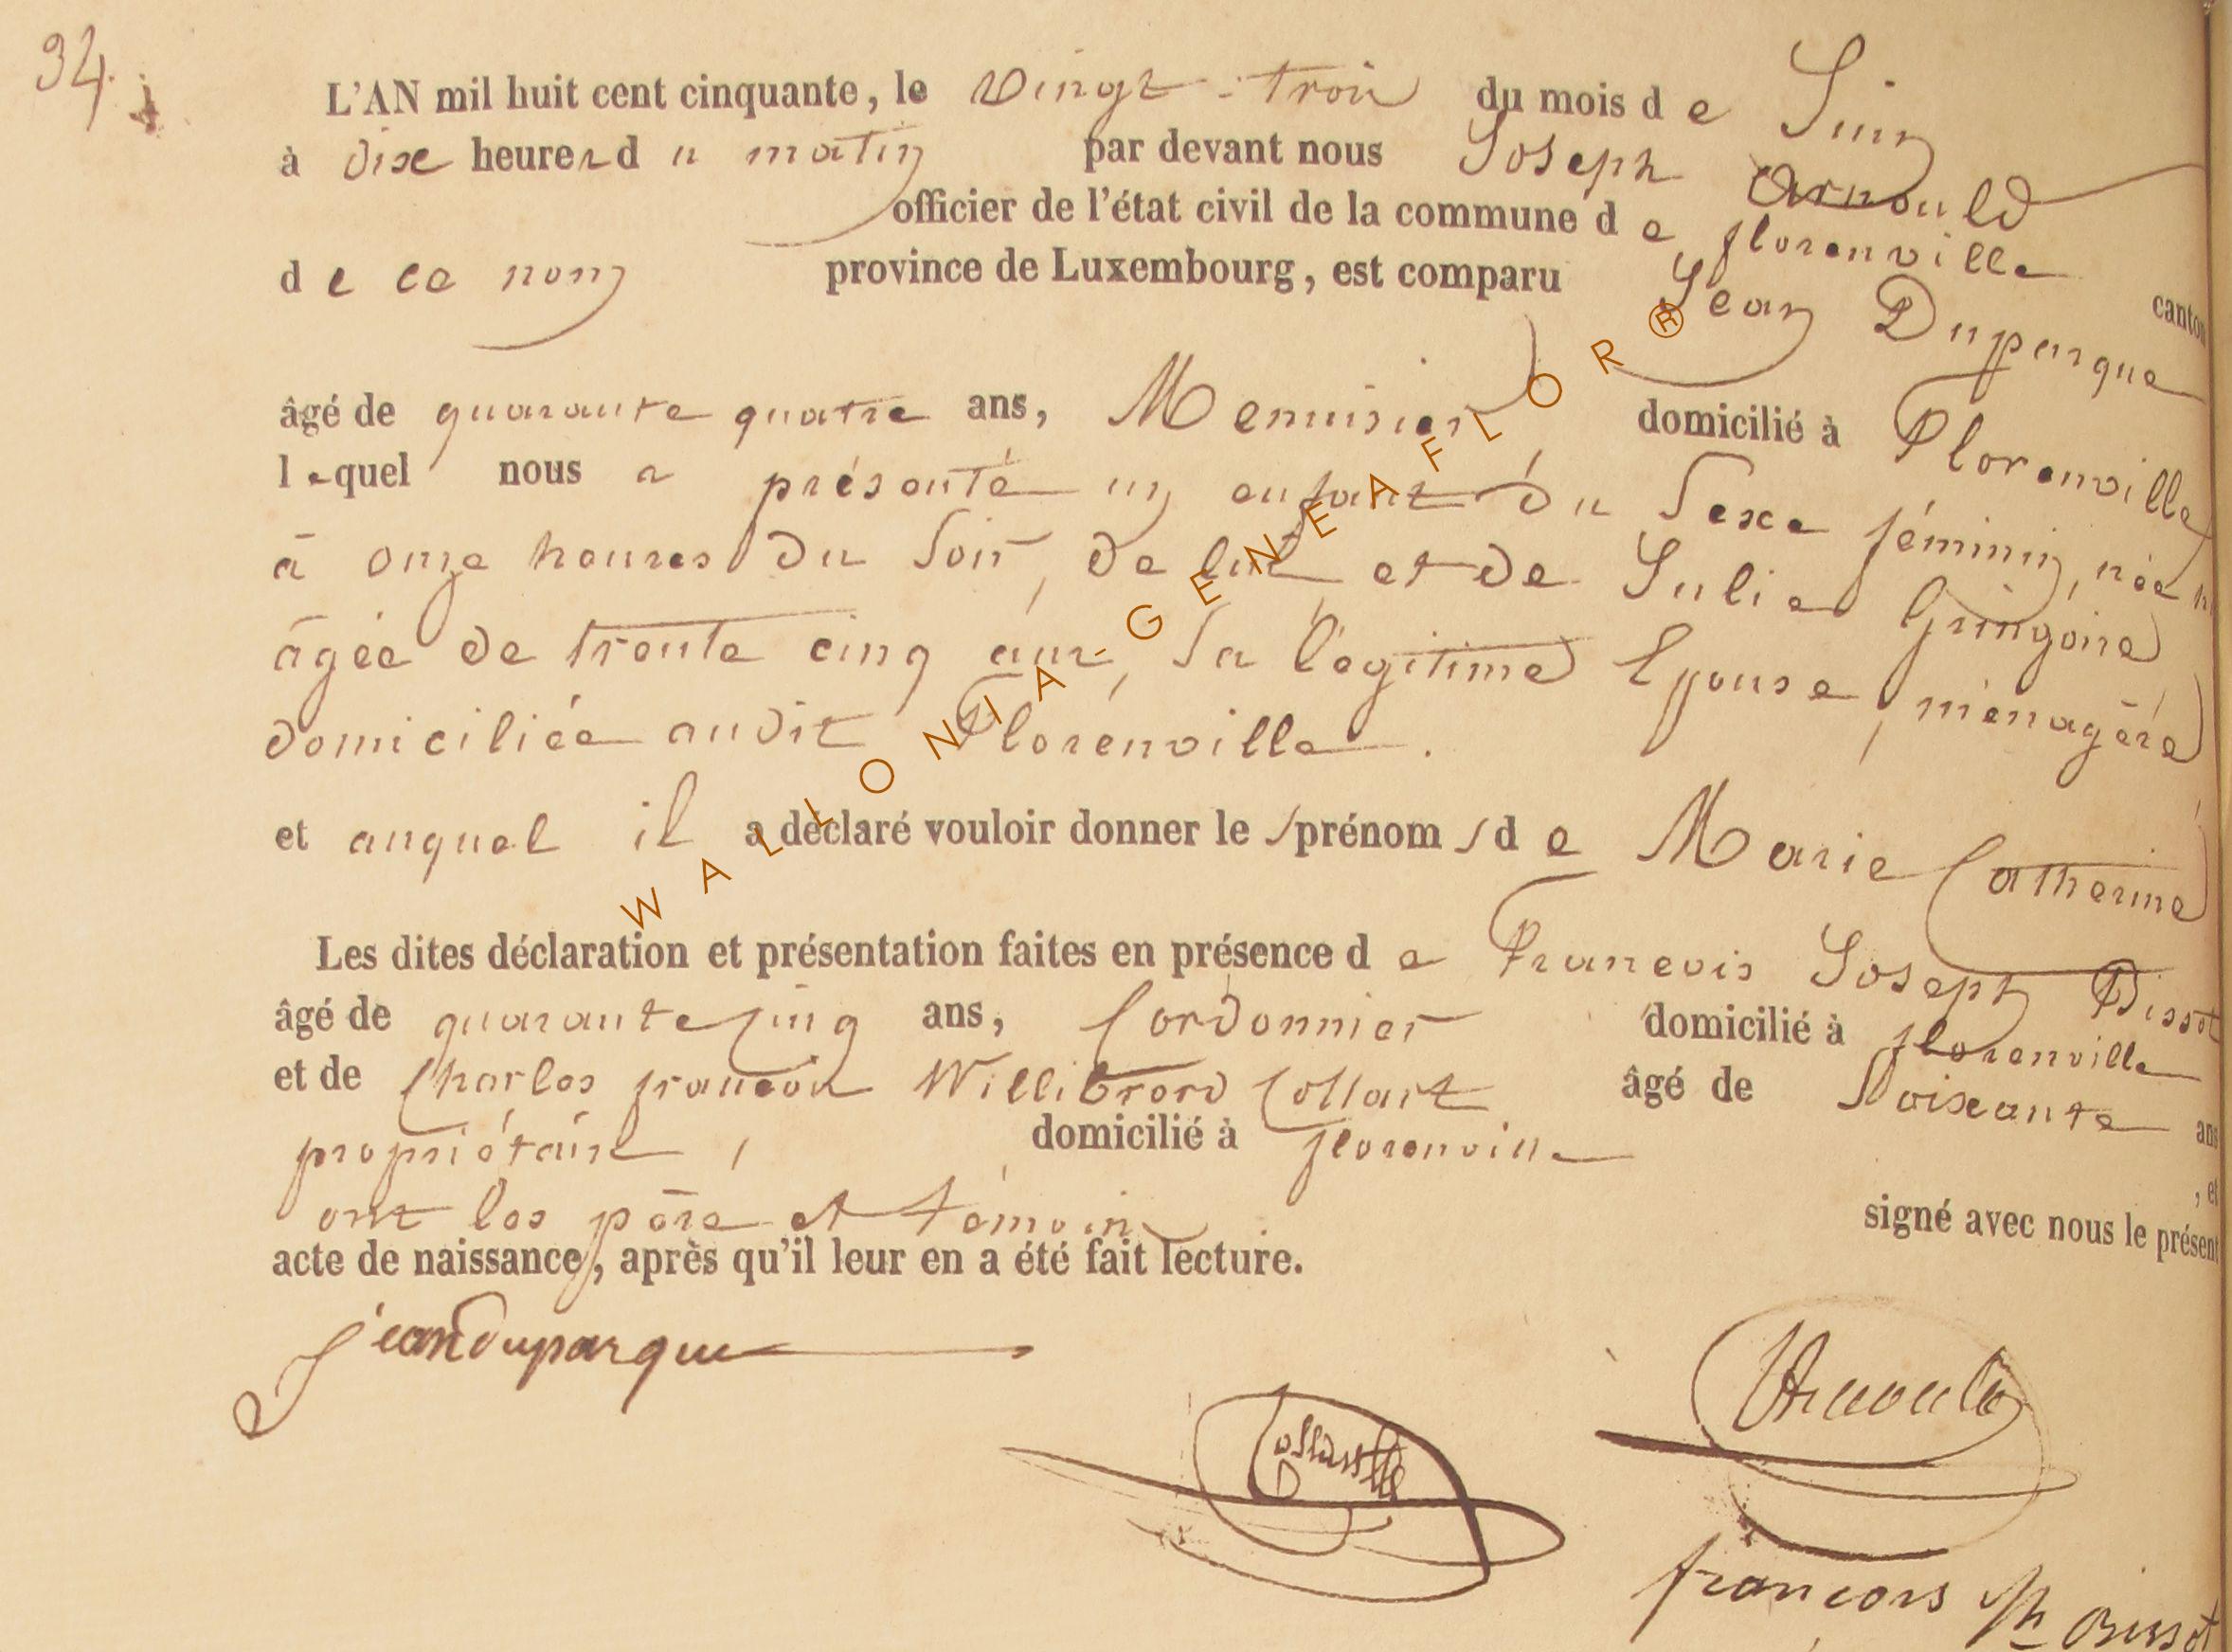 34.
L'AN mil huit cent cinquante, le vingt-trois du mois de Juin
à dix heures du matin par devant nous Joseph Arnould
officier de l'état civil de la commune de florenville
de ce nom province de Luxembourg, est comparu Jean Duparque
canton
âgé de quarante quatre ans, Menuisier domicilié à Florenville
lequel nous a présenté un enfant du Sexe féminin, née
à onze heures du Soir, de lui et de Julie Gringoire
âgée de trente cinq ans, Sa légitime Epouse, ménagère
domiciliée audit Florenville.
et auquel il a déclaré vouloir donner les prénoms de Marie Catherine
Les dites déclaration et présentation faites en présence de Francois Joseph Bissot
âgé de quarante cinq ans, Cordonnier domicilié à florenville
et de Charles francois Willibrord Collart âgé de Soixante ans
propriétaire, domicilié à florenville , et
ont les père et témoins signé avec nous le présent
acte de naissance, après qu'il leur en a été fait lecture.
jean duparque
Arnould
Collart
francois Jh Bissot
WALLONIA-GENEAFLOR®